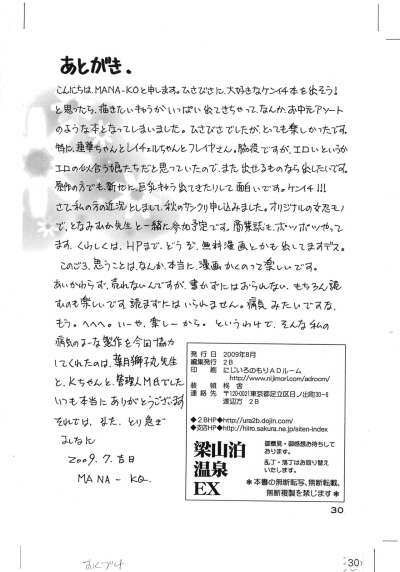 あとがき.
こんにちは、MANA-KOと申します。ひさびさに、大好きなケンイチ本を出そう!
と思ったら、描きたいキャラがいっぱい出てきちゃって、なんか、お中元アソート
のような本となってしまいました。ひさびさでしたが、とっても楽しかったです。
特に、連華ちゃんとレイチェルちゃんとフレイヤさん。脇役ですが、エロいというか
エロの似合う娘たちだと思っていたので、また出せるものなら出したいです。
原作の方でも、新たに巨乳キャラ出てきたりして面白いです。ケンイチ!!!
さて、私の方の近況としまして、秋のサンクリ申し込みました。オリジナルの女忍モノ
で、となみすか先生と一緒に参加予定です。商業誌も、ボツボツやって
ます、くわしくは、HPまで、どうぞ、無料漫画とかも出してますデス。
このごろ、思うことは、なんか、本当に、漫画かくのって楽しいです。
あいかわらず、売れないんですが、書かずにはおられない、もちろん読
むのも楽しいです読まずにはいられません。病気みたいですな、
もう。へへへ。いーや、楽しーから。というわけで、そんな私の
病気のよーな製作を今回協力
してくれたのは、葉月獅子丸先生
と、Kちゃんと、管理人MBでした
いつも本当にありがとうございます
それでは、また、とり急ぎ
ましなに
2009.7.吉日
MANA-KO.
発行日 2009年8月
編集発行 2B
印刷 にじいろのもりADルーム
http://www.nijimori.com/adroom/
装幀 柊舎
連絡先 〒120-0021東京都足立区日ノ出町30-8
渡辺方 2B
◆2BHP◆http://ura2b.dojin.com/
◆支店HP◆http://hiiro.sakura.ne.jp/siten-index
梁山泊
温泉
EX
御意見・御感想お待ちして
おります。
乱丁・落丁はお取り替え
いたします。
＊本書の無断転写、無断転載、
無断複製を禁じます＊
30
おくづけ
30